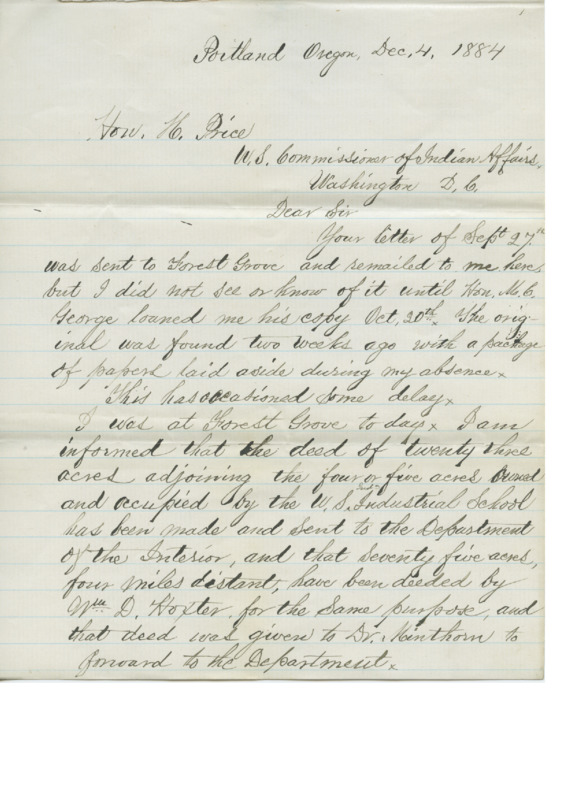 Portland Oregon, Dec. 4, 1884
Hon. H. Price
U.S. Commissioner of Indian Affairs,
Washington D.C.
Dear Sir
Your letter of Sept 27th
was sent to Forest Grove and remailed to me here,
but I did not see or know of it until Hon. M.C.
George loaned me his copy Oct. 20th. The orig-
inal was found two weeks ago with a package
of papers laid aside during my absence.
This has occasioned some delay.
I was at Forest Grove to day. I am
informed that the deed of twenty three
acres adjoining the four or five acres owned
and occupied by the U.S. Industrial School
has been made and sent to the Department
of the Interior, and that seventy five acres,
four miles distant, have been deeded by
Wm D. Hoxter for the same purpose, and
that deed was given to Dr. Minthorn to
forward to the Department.